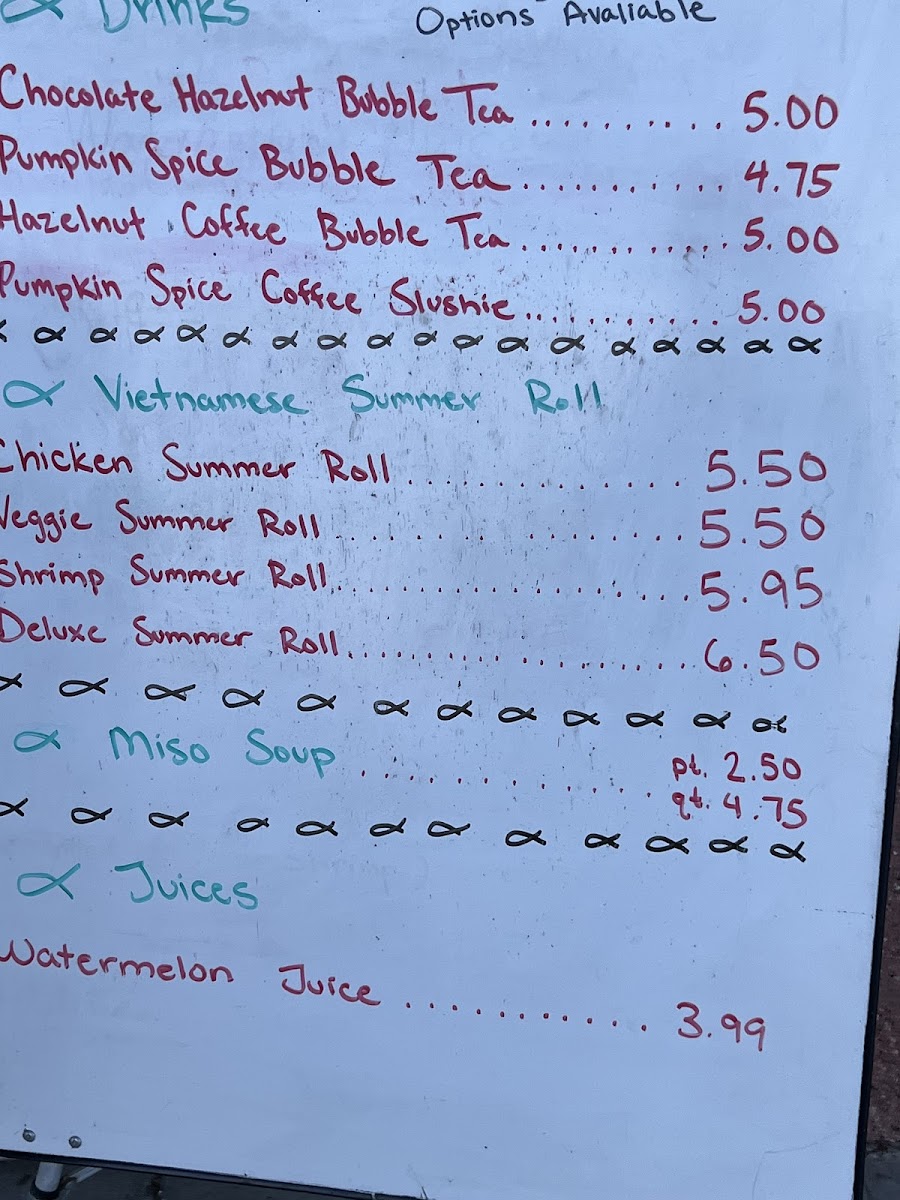 Drinks
Options Avaliable
Chocolate Hazelnut Bubble Tea .......... 5.00
Pumpkin Spice Bubble Tea ........... 4.75
Hazelnut Coffee Bubble Tea ............ 5.00
Pumpkin Spice Coffee Slushie ........... 5.00
Vietnamese Summer Roll
Chicken Summer Roll .............. 5.50
Veggie Summer Roll .............. 5.50
Shrimp Summer Roll .................. 5.95
Deluxe Summer Roll .................. 6.50
Miso Soup ............ pt. 2.50
qt. 4.75
Juices
Watermelon Juice ........... 3.99